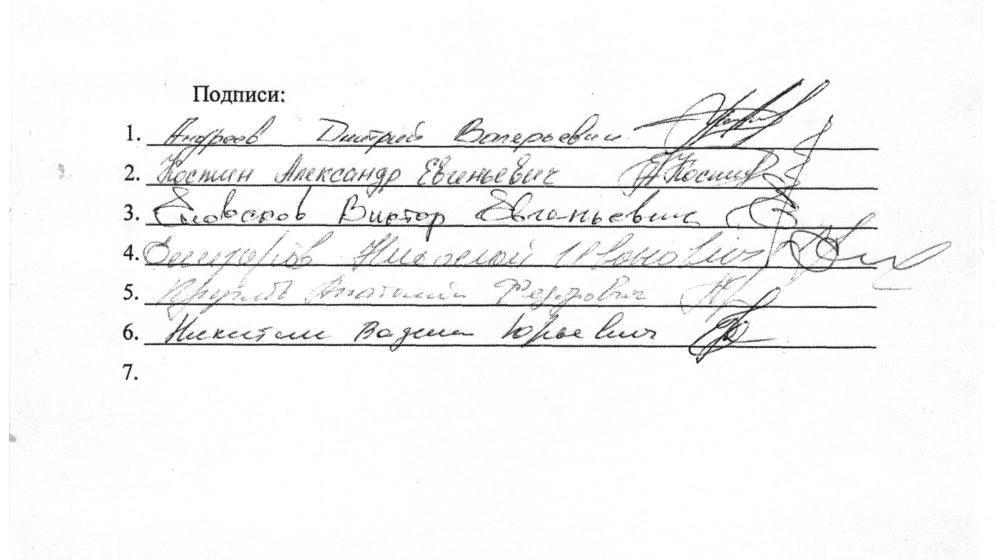 Подписи:
1. Андреев Дмитрий Валерьевич
2. Костин Александр Евгеньевич Костин
3. Виктор Евгеньевич
4. Николай Иванович
5. Анатолий Федорович
6. Никитин Вадим Юрьевич
7.